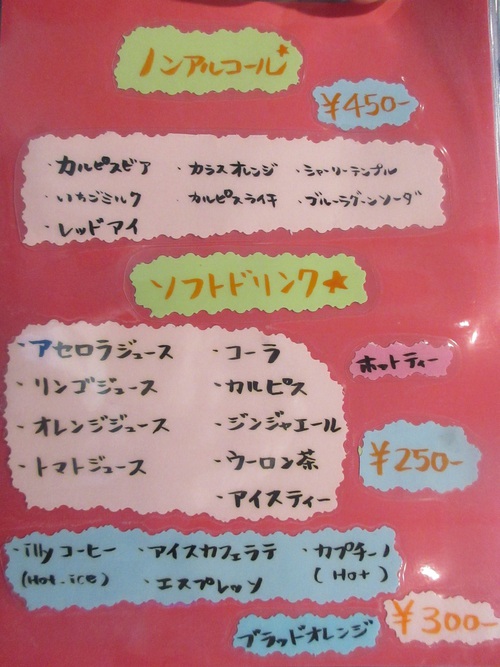 ノンアルコール
¥450-
・カルピスビア ・カシスオレンジ ・シャーリーテンプル
・いちごミルク ・カルピスライチ ・ブルーラグーンソーダ
・レッドアイ
ソフトドリンク
・アセロラジュース ・コーラ
ホットティー
・リンゴジュース ・カルピス
・オレンジジュース ・ジンジャエール
・トマトジュース ・ウーロン茶
¥250-
・アイスティー
・illyコーヒー ・アイスカフェラテ ・カプチーノ
(Hot.ice) ・エスプレッソ (Hot)
ブラッドオレンジ
¥300-